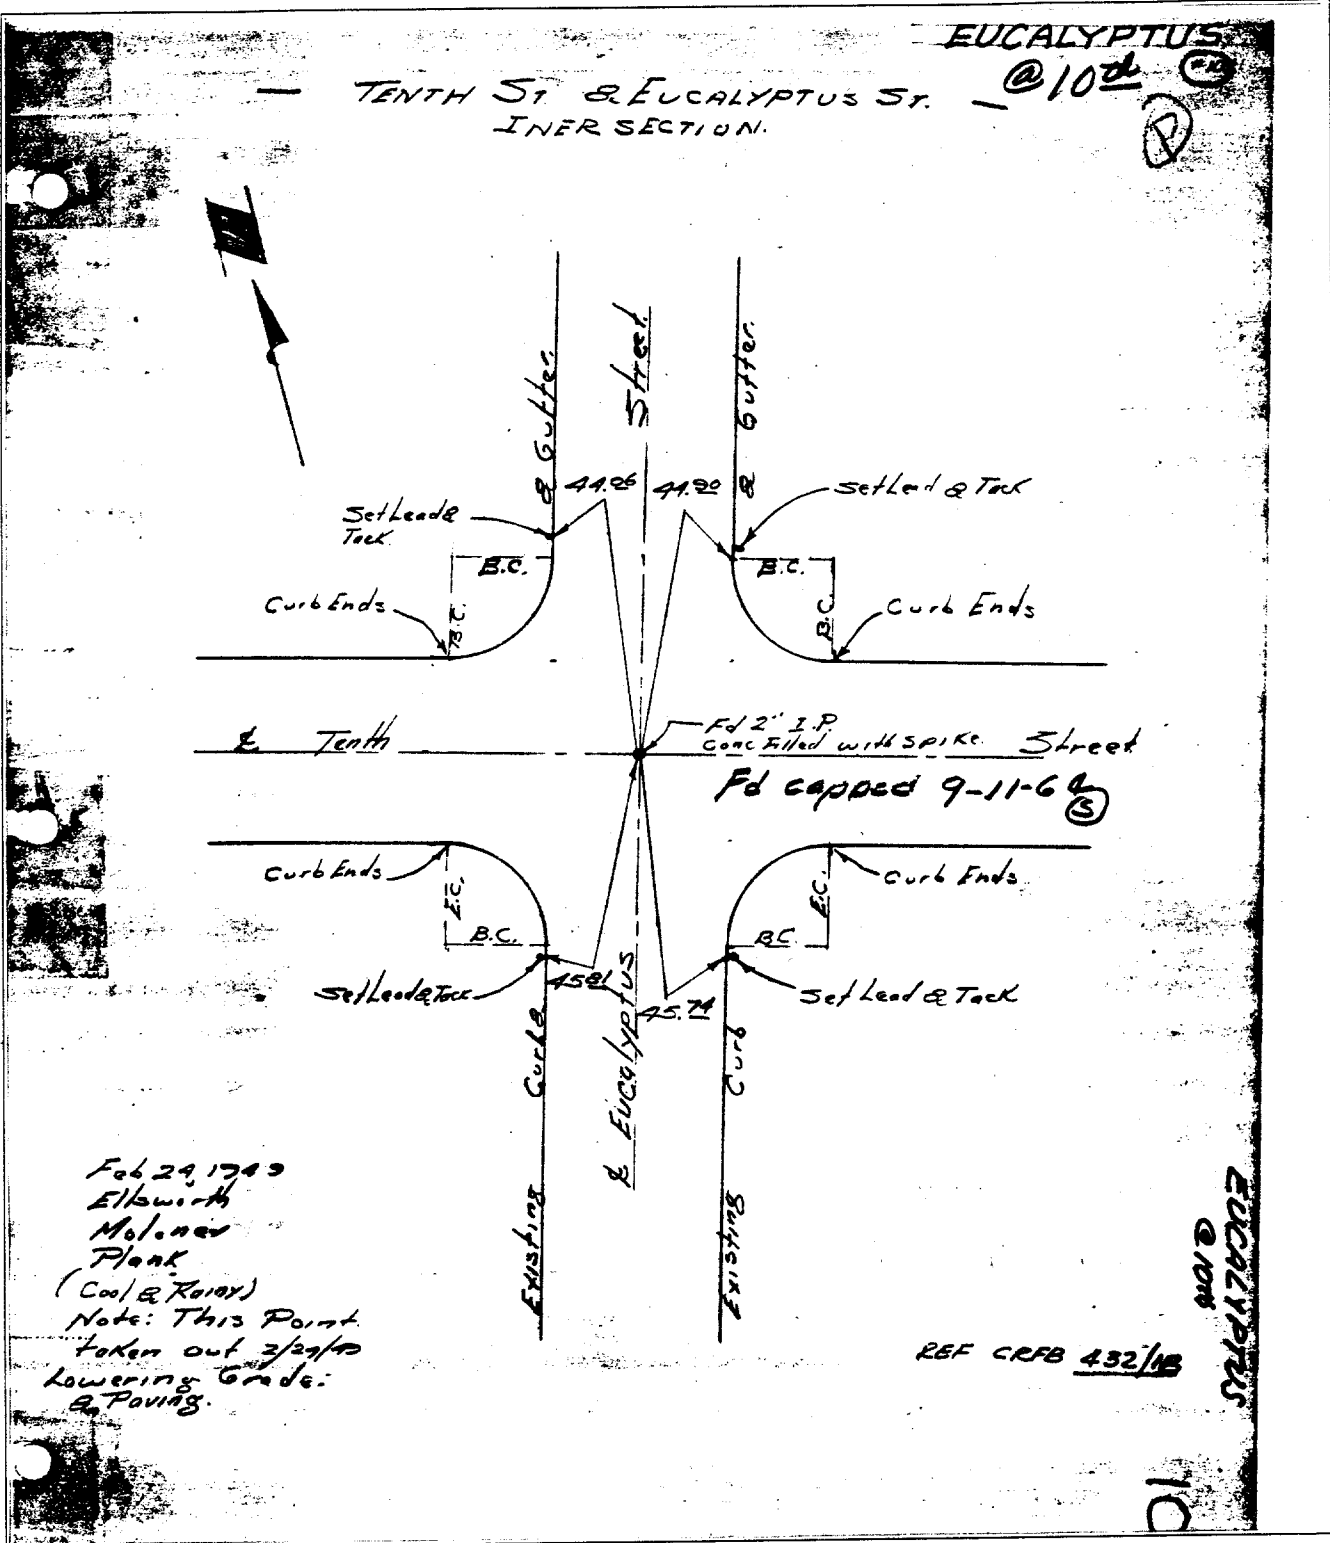 EUCALYPTUS
@ 10th
P
— TENTH ST. & EUCALYPTUS ST. —
INERSECTION.
N
Street
& Gutter.
& Gutter.
44.96
44.90
Set Lead &
Tack
Set Lead & Tack
B.C.
B.C.
B.C.
B.C.
Curb Ends
Curb Ends
℄ Tenth
Street
Fd 2" I.P.
Conc Filled with Spike.
Fd capped 9-11-6
S
Curb Ends
Curb Ends
E.C.
E.C.
B.C.
B.C.
Set Lead & Tack
Set Lead & Tack
45.81
45.74
℄ Eucalyptus
Existing Curb &
Existing Curb
Feb 24, 1949
Ellsworth
Moloney
Plank
(Cool & Rainy)
Note: This Point
taken out 2/24/49
Lowering Grade:
& Paving.
REF CRFB 432/
EUCALYPTUS
@ 10TH
10